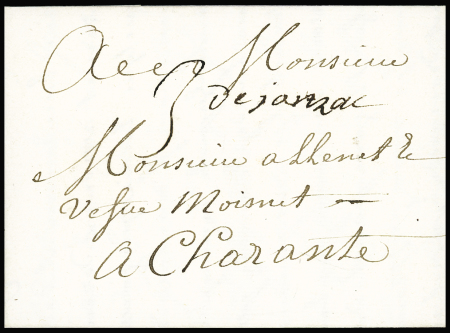 A Monsieur
3
de jonzac
Monsieur allenet &
vefve Moinet
A Charante